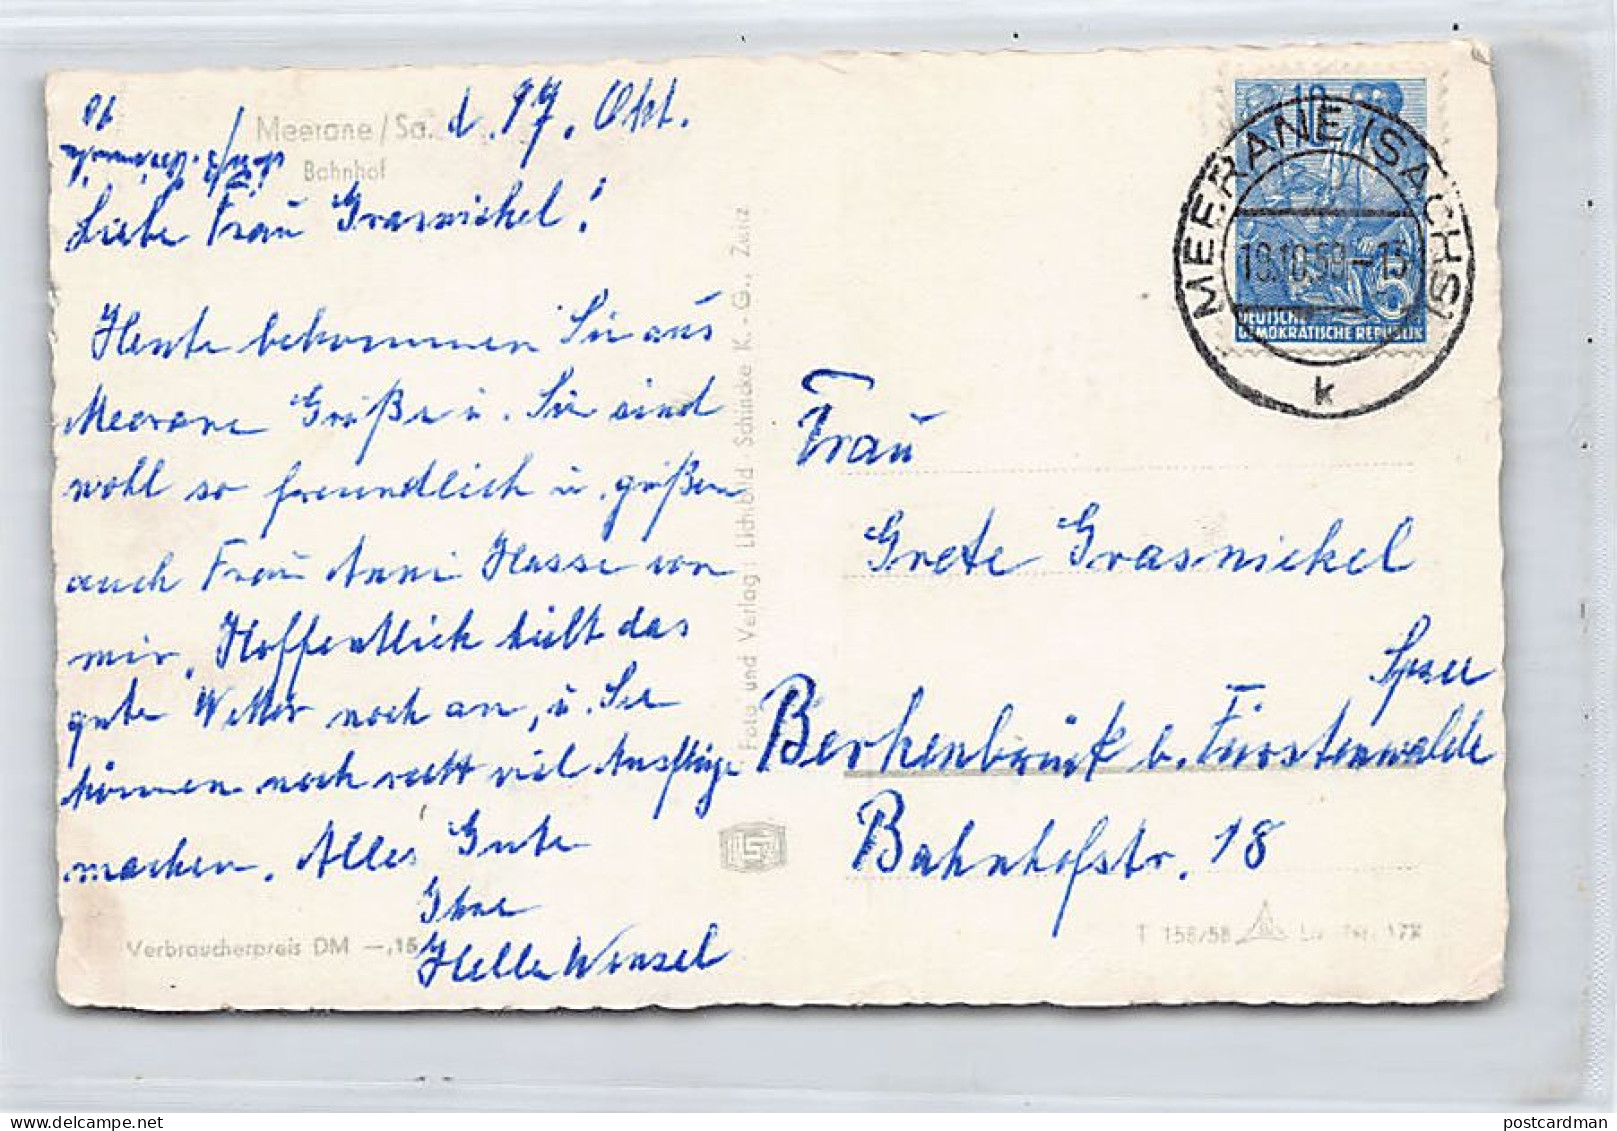 Meerane/Sa. d. 17. Okt.
Bahnhof
Liebe Frau Grasnickel!
Heute bekommen Sie aus
Meerane Grüße u. Sie sind
wohl so freundlich u. grüßen
auch Frau Anni Hasse von
mir. Hoffentlich hält das
gute Wetter noch an, u. Sie
können noch recht viel Ausflüge
machen. Alles Gute
Ihre
Hella Wensel
Verbraucherpreis DM —,15
Foto und Verlag: Lichtbild-Schincke K.-G., Zeitz
10
MEERANE (SACHS)
19.10.59-13
k
5
DEUTSCHE
DEMOKRATISCHE REPUBLIK
Frau
Grete Grasnickel
Spree
Berkenbrück b. Fürstenwalde
Bahnhofstr. 18
T 158/58
postcardman